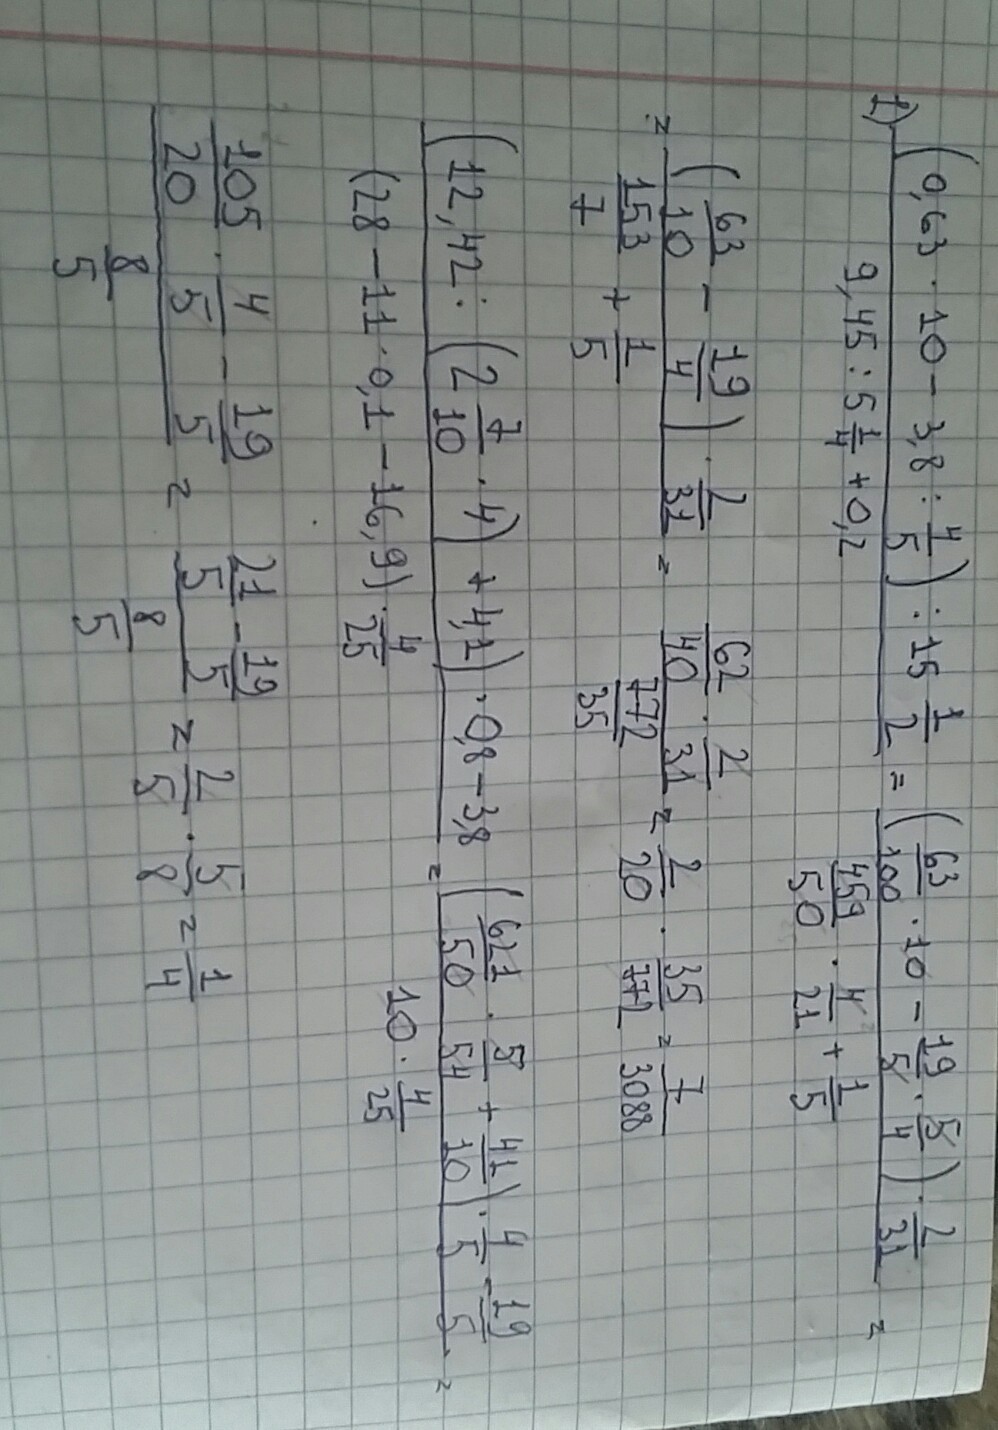 1) (0,63 · 10 − 3,8 : 4/5) : 15 1/2 / 9,45 : 5 1/4 + 0,2 = (63/100 · 10 − 19/5 · 5/4) · 2/31 / 459/50 · 4/21 + 1/5 =
= (63/10 − 19/4) · 2/31 / 153/7 + 1/5 = 62/40 · 2/31 / 772/35 = 2/20 · 35/772 = 7/3088
(12,42 : (2 7/10 · 4) + 4,1) · 0,8 − 3,8 / (28 − 11 · 0,1 − 16,9) · 4/25 = (621/50 · 5/54 + 41/10) · 4/5 − 19/5 / 10 · 4/25 =
105/20 · 4/5 − 19/5 / 8/5 = 21/5 − 19/5 / 8/5 = 2/5 · 5/8 = 1/4